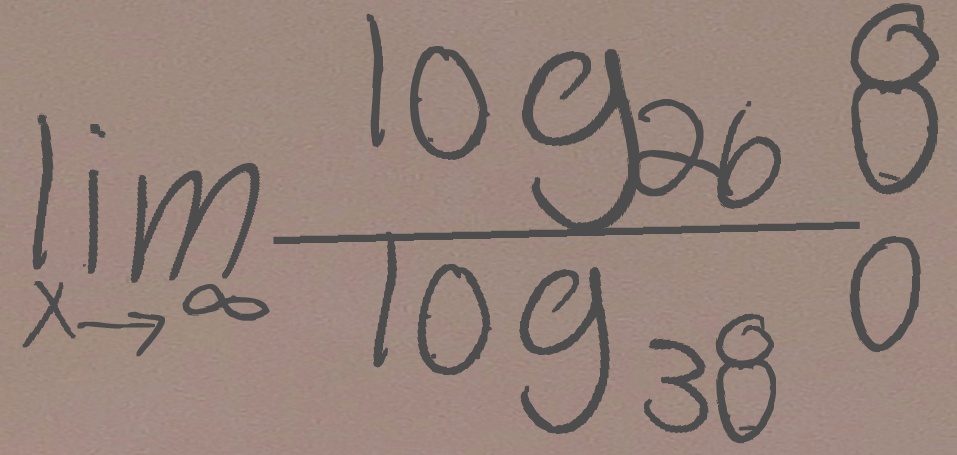 lim x→∞ log₂₆ 8 / log₃₈ 0